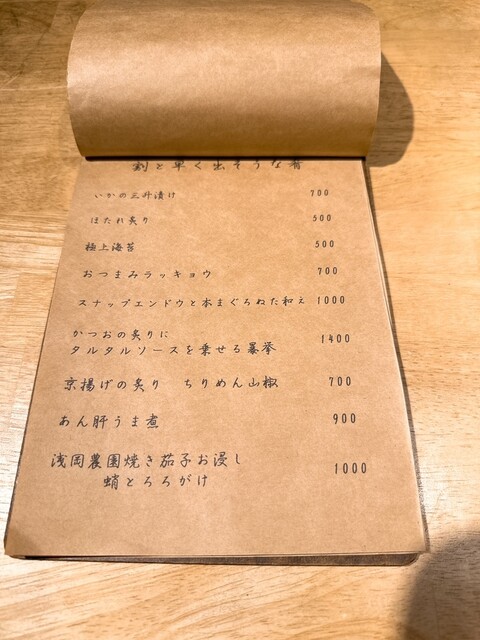 割と早く出そうな肴
いかの三升漬け 700
ほたれ炙り 500
極上海苔 500
おつまみラッキョウ 700
スナップエンドウと本まぐろぬた和え 1000
かつおの炙りに
タルタルソースを乗せる暴挙 1400
京揚げの炙り ちりめん山椒 700
あん肝うま煮 900
浅岡農園焼き茄子お浸し
蛸とろろがけ 1000